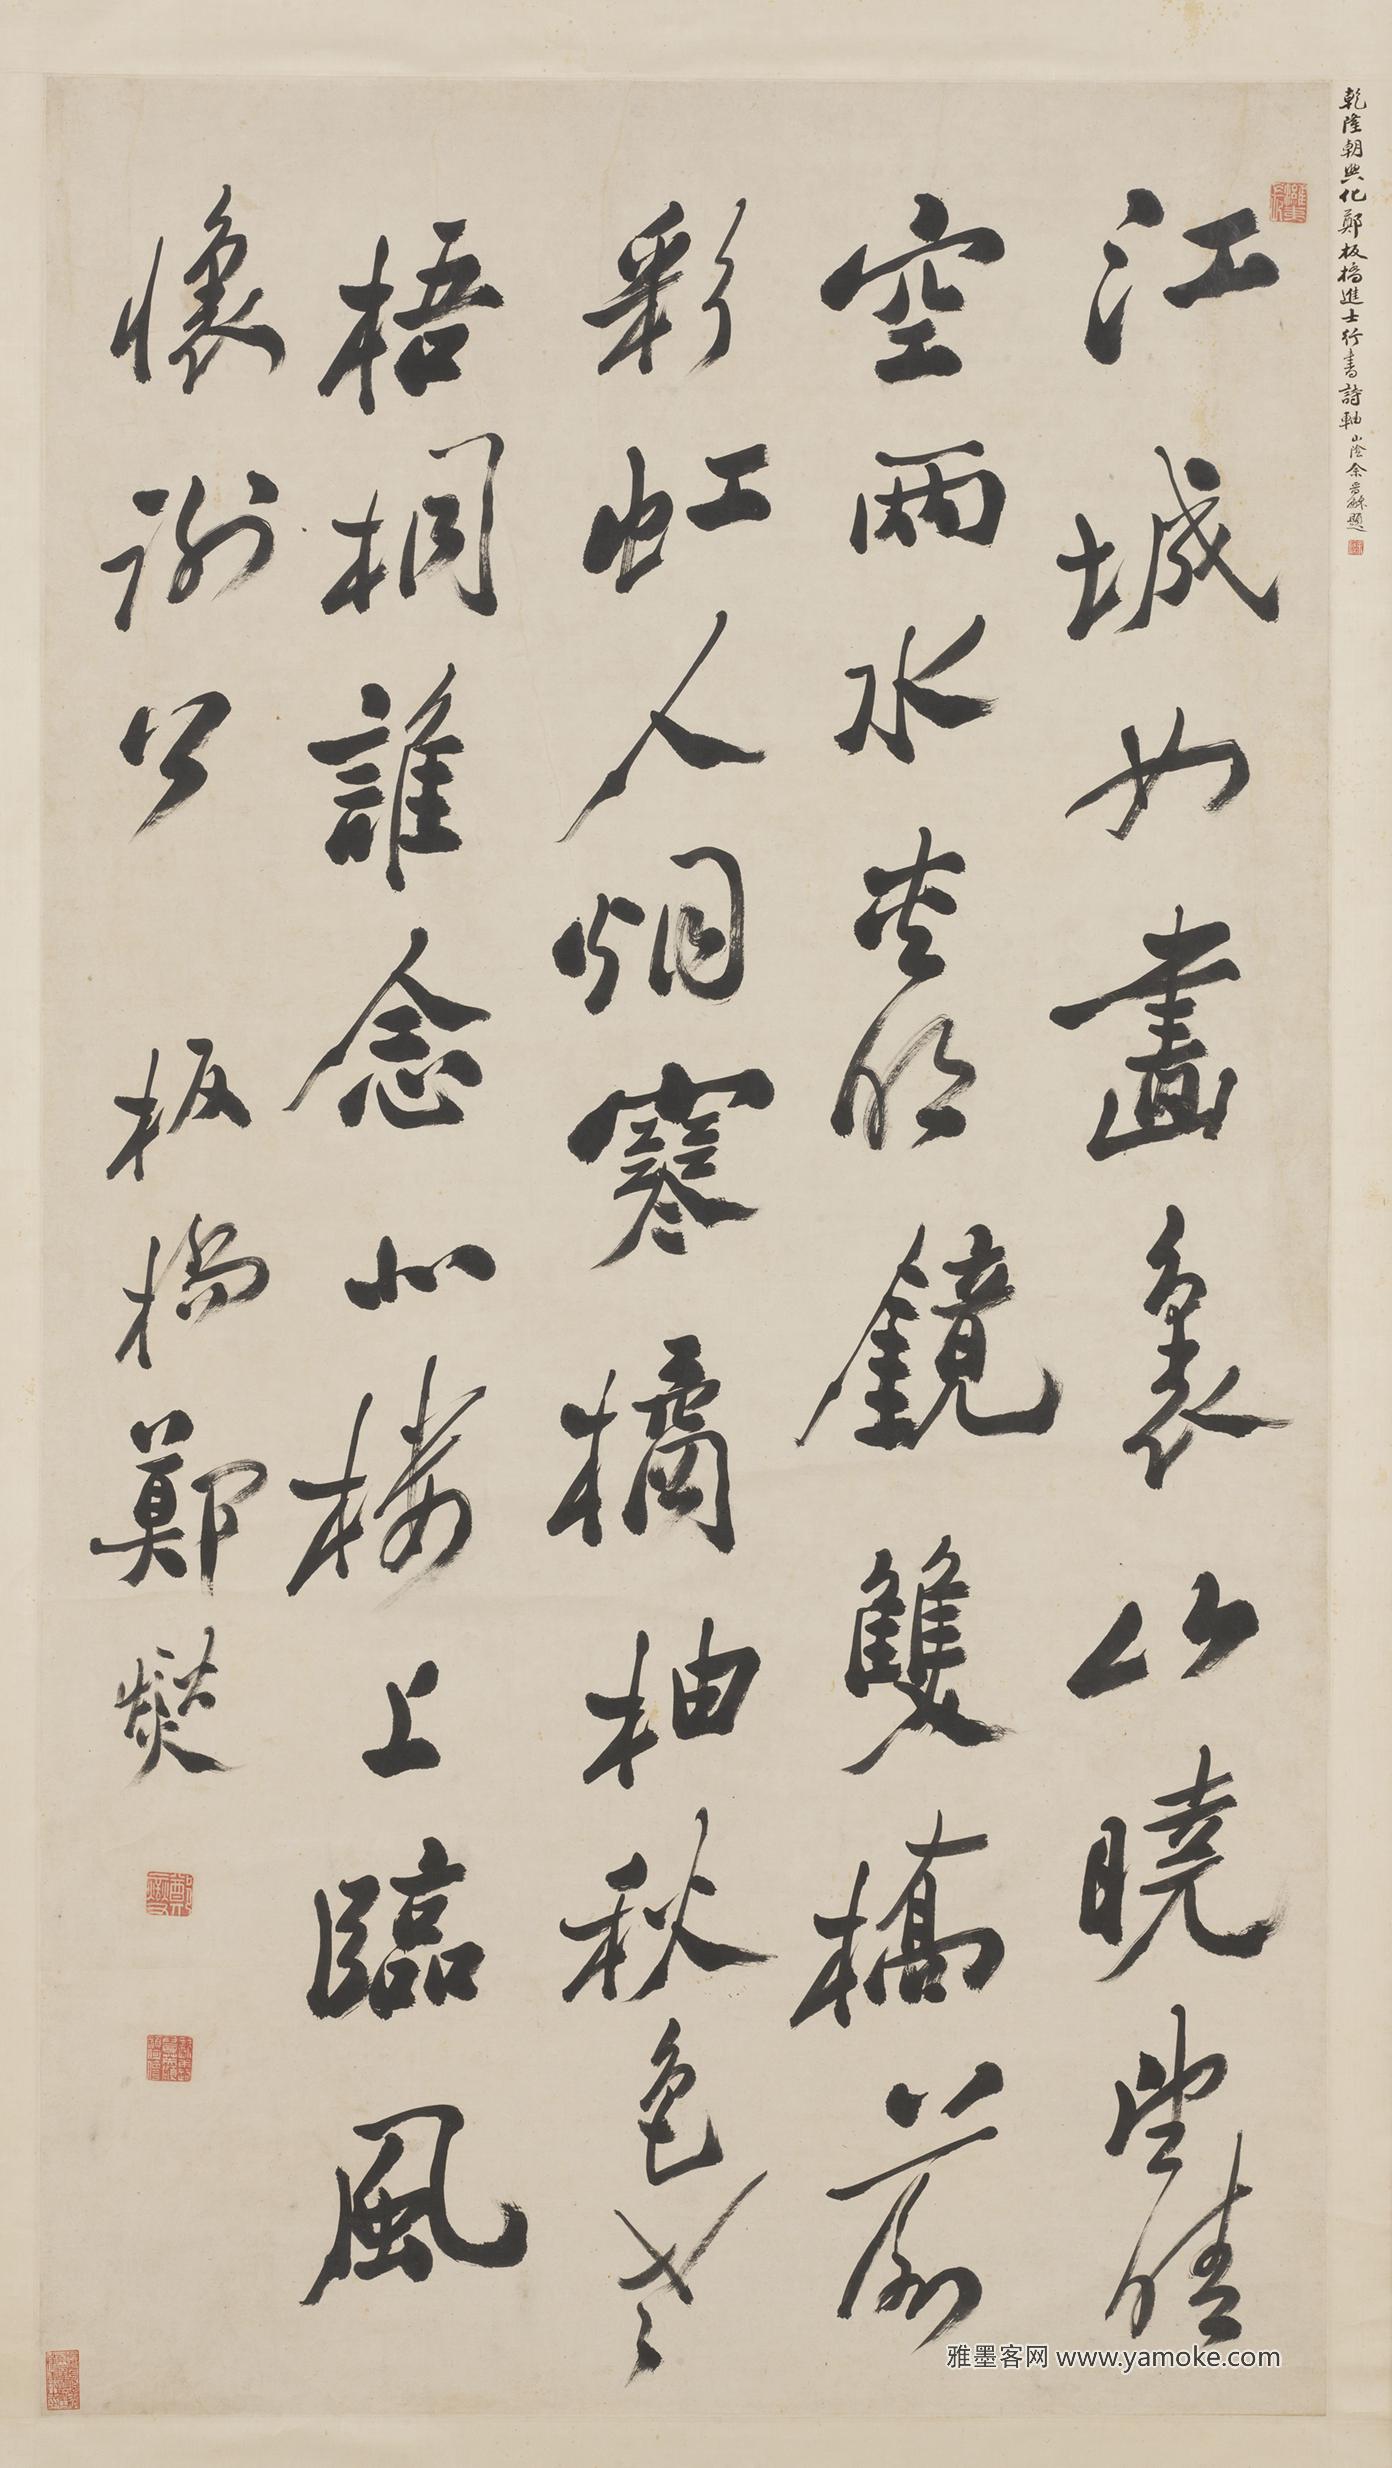 乾隆朝興化鄭板橋進士行書詩軸 山陰余晋龢題
江城如畫裏山曉望晴
空兩水夾明鏡雙橋落
彩虹人烟寒橘柚秋色老
梧桐誰念北樓上臨風
懷謝公 板橋鄭燮
雅墨客网 www.yamoke.com